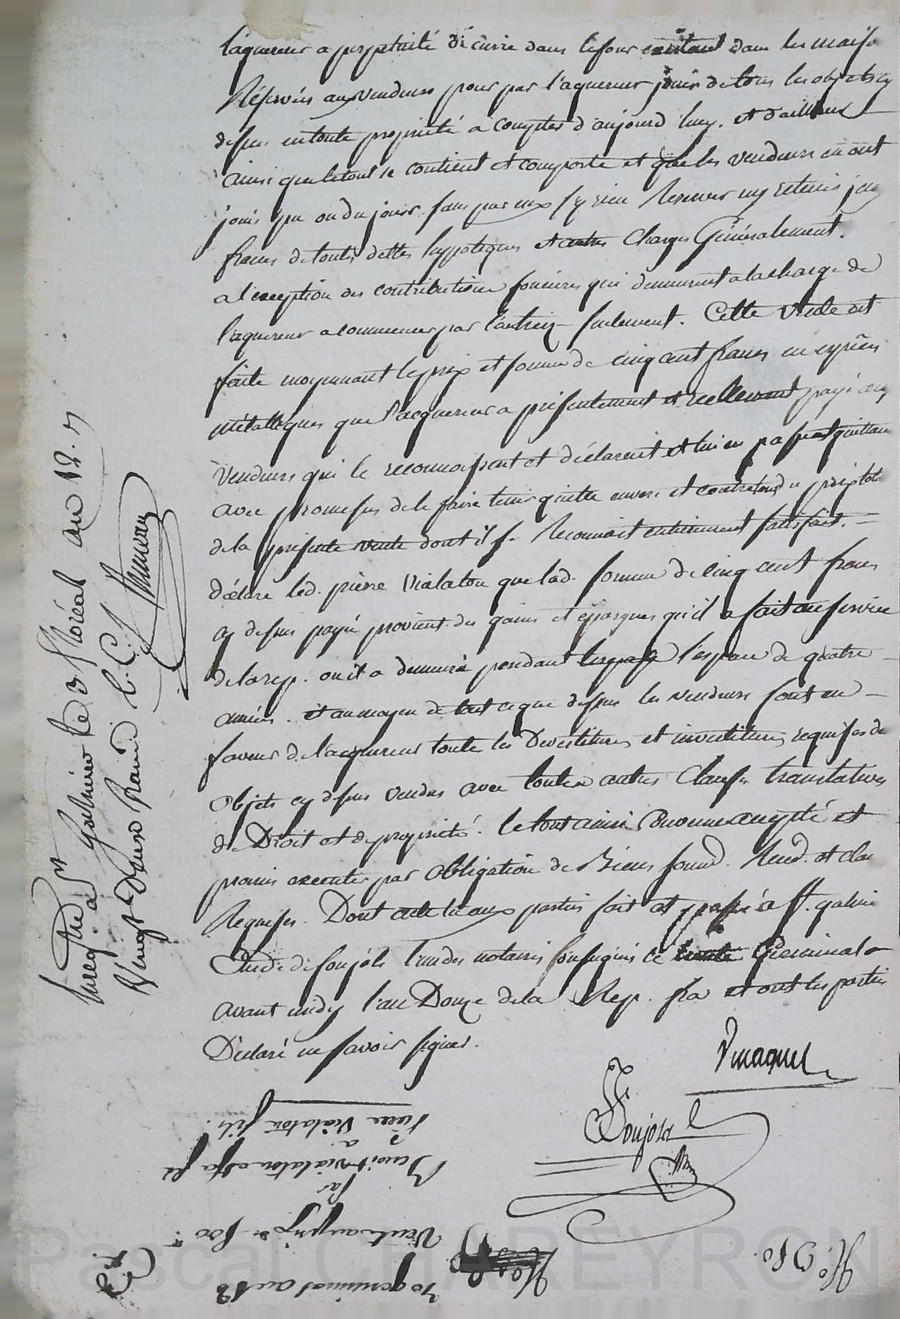 l'aquereur a perpetuité de cuire dans le four existant dans les maiso
Réservés aux vendeurs pour par l'aquereur jouir de tous les objets cy
dessus en toute propriété a compter d'aujourd'huy. et d'ailleurs
ainsi que le tout se contient et comporte et que les vendeurs en ont
joui pu ou du jouir. sans par eux s'y rien Reserver ny retenir
francs de toutes dettes hypoteques et autres Charges Généralement.
a l'exception des contributions foncieres qui demeurent a la charge de
l'aquereur a commencer par l'an treize seulement. Cette vente est
faite moyennant le prix et somme de cinq cent francs en espèces
métalliques que l'acquereur a présentement et réellement payé aux
vendeurs qui le reconnoissent et déclarent et lui en passent quittance
avec promesse de le faire tenir quitte envers et contre tous du prix total
de la présente vente dont il se Reconnait entierement satisfait.
déclare led. pierre Vialaton que lad. somme de cinq cent francs
cy dessus payé provient des gains et épargnes qu'il a fait au service
de la rep. ou il a demeuré pendant l'espace de quatre
années. et au moyen de tout ce que dessus les vendeurs font en
faveur de l'acquereur toute les Devestitures et investitures requises des
objets cy dessus vendus avec toutes autres Clauses translatives
de Droit et de propriété. le tout ainsi Convenu accepté et
promis executer par obligation de Biens soumd. Renond. et clau
Requises. Dont acte aux parties fait et passé a St. galmi
Etude de soujols l'un des notaires soussignés ce trente Germinal
avant midy l'an Douze de la Rep. fra et ont les parties
Déclaré ne savoir signer.
Soujols
Enregtré a St Galmier le 3 floréal an 12.
Vingt Deux francs
30 germinal an 12
Vente au prix de 500
par
Benoit vialaton
a
Pierre Vialaton fils.
Pascal CHAREYRON